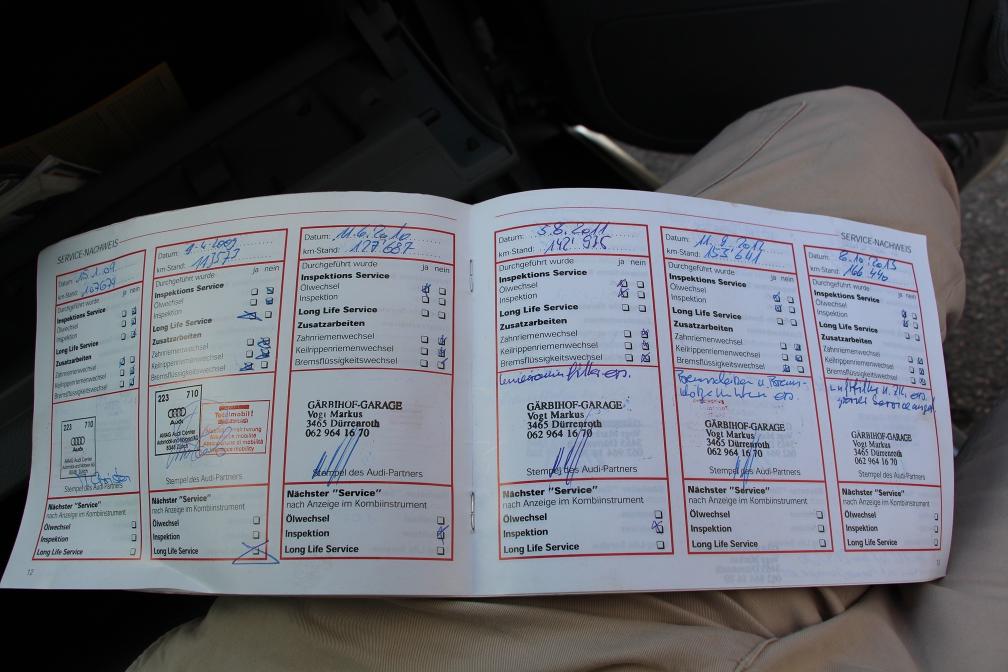 SERVICE-NACHWEIS
Datum: 15.1.09
km-Stand:
Durchgeführt wurde ja nein
Inspektions Service
Ölwechsel
Inspektion
Long Life Service
Zusatzarbeiten
Zahnriemenwechsel
Keilrippenriemenwechsel
Bremsflüssigkeitswechsel
223 710
Audi
AMAG Audi Center
Stempel des Audi-Partners
Nächster "Service"
nach Anzeige im Kombiinstrument
Ölwechsel
Inspektion
Long Life Service
12
Datum: 9.4.2009
km-Stand: 113573
Durchgeführt wurde ja nein
Inspektions Service
Ölwechsel
Inspektion
Long Life Service
Zusatzarbeiten
Zahnriemenwechsel
Keilrippenriemenwechsel
Bremsflüssigkeitswechsel
223 710
Audi
AMAG Audi Center
Totalmobil!
Stempel des Audi-Partners
Nächster "Service"
nach Anzeige im Kombiinstrument
Ölwechsel
Inspektion
Long Life Service
Datum: 11.6.2010
km-Stand: 127'687
Durchgeführt wurde ja nein
Inspektions Service
Ölwechsel
Inspektion
Long Life Service
Zusatzarbeiten
Zahnriemenwechsel
Keilrippenriemenwechsel
Bremsflüssigkeitswechsel
GÄRBIHOF-GARAGE
Vogt Markus
3465 Dürrenroth
062 964 16 70
Stempel des Audi-Partners
Nächster "Service"
nach Anzeige im Kombiinstrument
Ölwechsel
Inspektion
Long Life Service
Datum: 3.8.2011
km-Stand: 142'975
Durchgeführt wurde ja nein
Inspektions Service
Ölwechsel
Inspektion
Long Life Service
Zusatzarbeiten
Zahnriemenwechsel
Keilrippenriemenwechsel
Bremsflüssigkeitswechsel
Innenraumfilter ers.
GÄRBIHOF-GARAGE
Vogt Markus
3465 Dürrenroth
062 964 16 70
Stempel des Audi-Partners
Nächster "Service"
nach Anzeige im Kombiinstrument
Ölwechsel
Inspektion
Long Life Service
Datum: 11.9.2012
km-Stand: 153'641
Durchgeführt wurde ja nein
Inspektions Service
Ölwechsel
Inspektion
Long Life Service
Zusatzarbeiten
Zahnriemenwechsel
Keilrippenriemenwechsel
Bremsflüssigkeitswechsel
Bremsscheiben u. Brems-
klötze hinten ers.
GÄRBIHOF-GARAGE
Vogt Markus
3465 Dürrenroth
062 964 16 70
Stempel des Audi-Partners
Nächster "Service"
nach Anzeige im Kombiinstrument
Ölwechsel
Inspektion
Long Life Service
SERVICE-NACHWEIS
Datum: 8.10.2013
km-Stand: 166'440
Durchgeführt wurde ja nein
Inspektions Service
Ölwechsel
Inspektion
Long Life Service
Zusatzarbeiten
Zahnriemenwechsel
Keilrippenriemenwechsel
Bremsflüssigkeitswechsel
Luftfilter ers.
grosser Service
GÄRBIHOF-GARAGE
Vogt Markus
3465 Dürrenroth
062 964 16 70
Stempel des Audi-Partners
Nächster "Service"
nach Anzeige im Kombiinstrument
Ölwechsel
Inspektion
Long Life Service